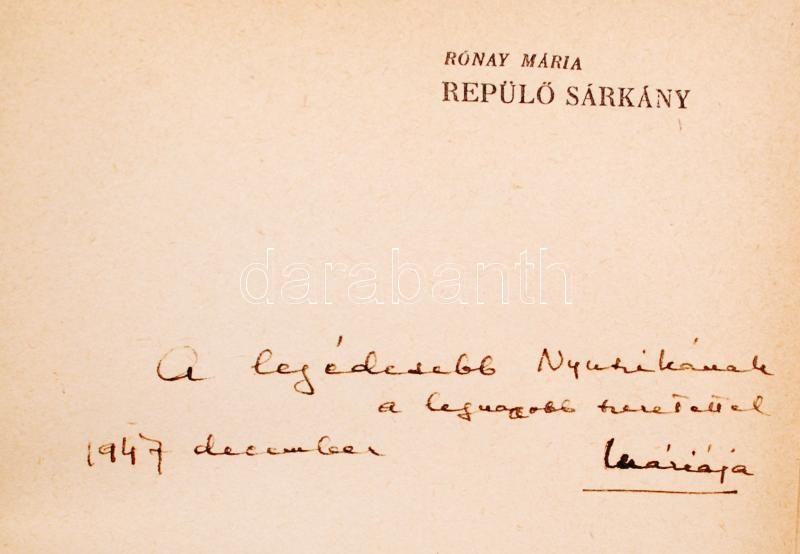 RÓNAY MÁRIA
REPÜLŐ SÁRKÁNY
darabanth
A legédesebb Nyuszikának
a legnagyobb szeretettel
1947 december Máriája